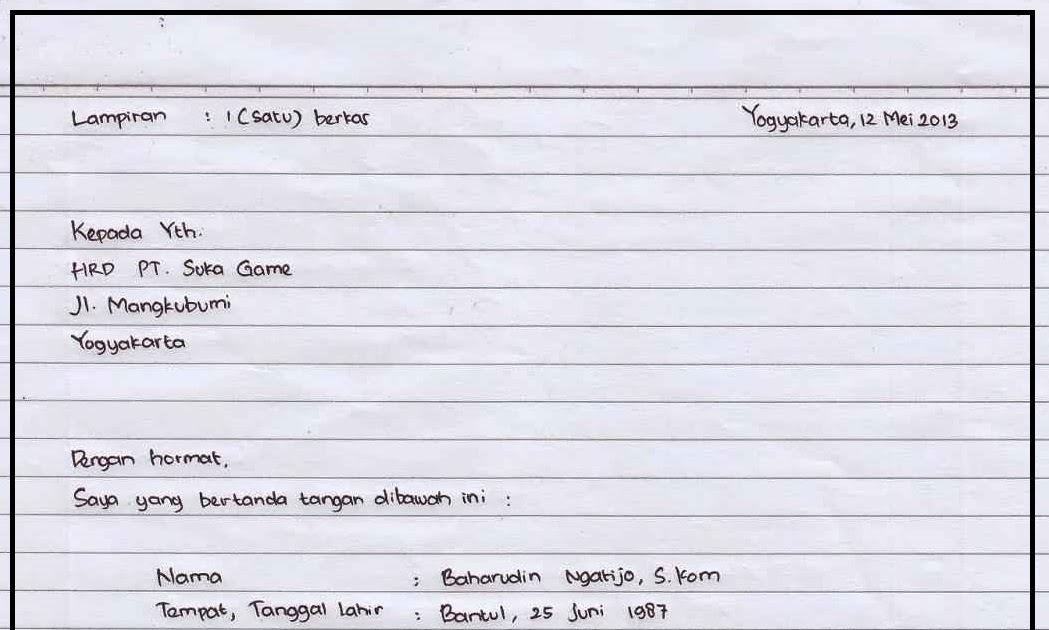 Lampiran : 1 (Satu) berkas Yogyakarta, 12 Mei 2013
Kepada Yth.
HRD PT. Suka Game
Jl. Mangkubumi
Yogyakarta
Dengan hormat,
Saya yang bertanda tangan dibawah ini :
Nama : Baharudin Ngatijo, S.Kom
Tempat, Tanggal lahir : Bantul, 25 Juni 1987